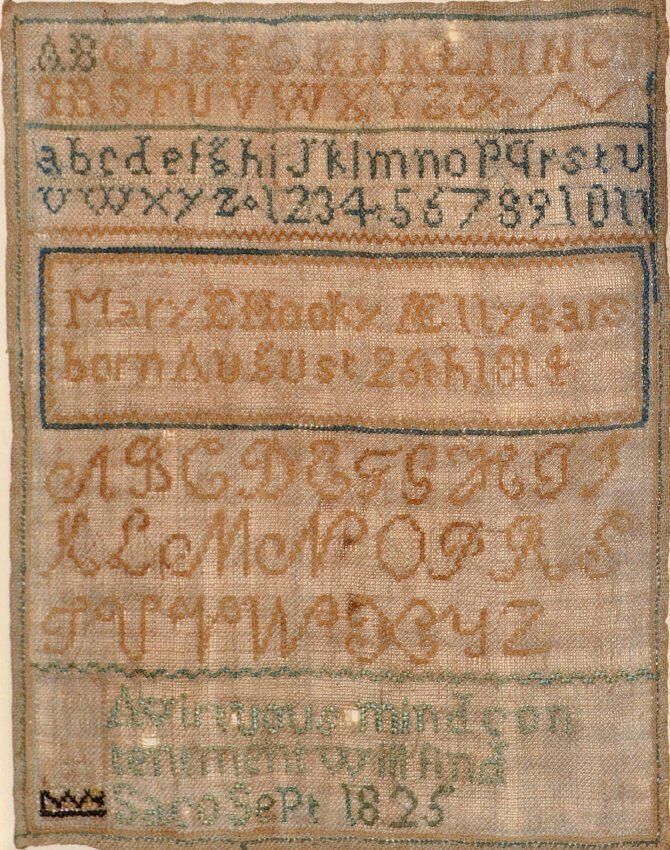 ABCDEFGHIJKLMNOP
QRSTUVWXYZ&
abcdefghiJklmnopqrstu
vwxyz 1234 5678910 11
Mary E Hooky Æ 11 years
born August 26th 1814
ABCDEFGHIJ
KLMNOPRS
TUVWXYZ
A virtuous mind con
tentment will find
Saco Sept 1825